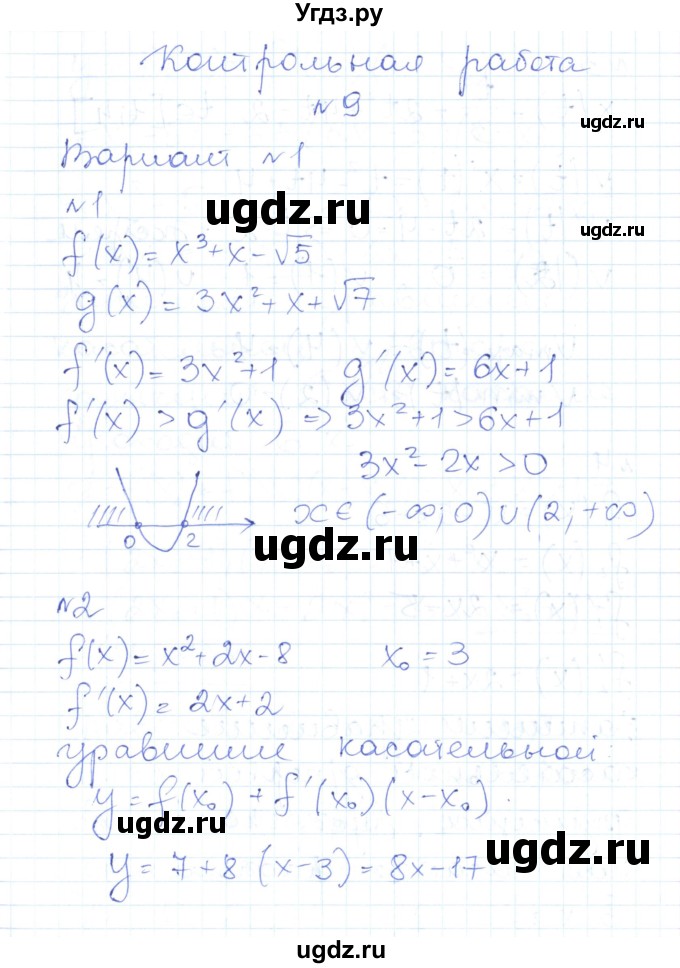 Угдз.ру
Контрольная работа
№9
ugdz.ru
Вариант №1
№1
ugdz.ru
ugdz.ru
f(x) = x³+x-√5
g(x) = 3x²+x+√7
f'(x) = 3x²+1 g'(x) = 6x+1
f'(x) > g'(x) ⇒ 3x²+1>6x+1
3x²-2x>0
x∈(-∞;0)∪(2;+∞)
0 2
ugdz.ru
№2
f(x) = x²+2x-8 x₀ = 3
f'(x) = 2x+2
уравнение касательной
y = f(x₀) + f'(x₀)(x-x₀)
ugdz.ru
ugdz.ru
y = 7+8(x-3) = 8x-17
ugdz.ru